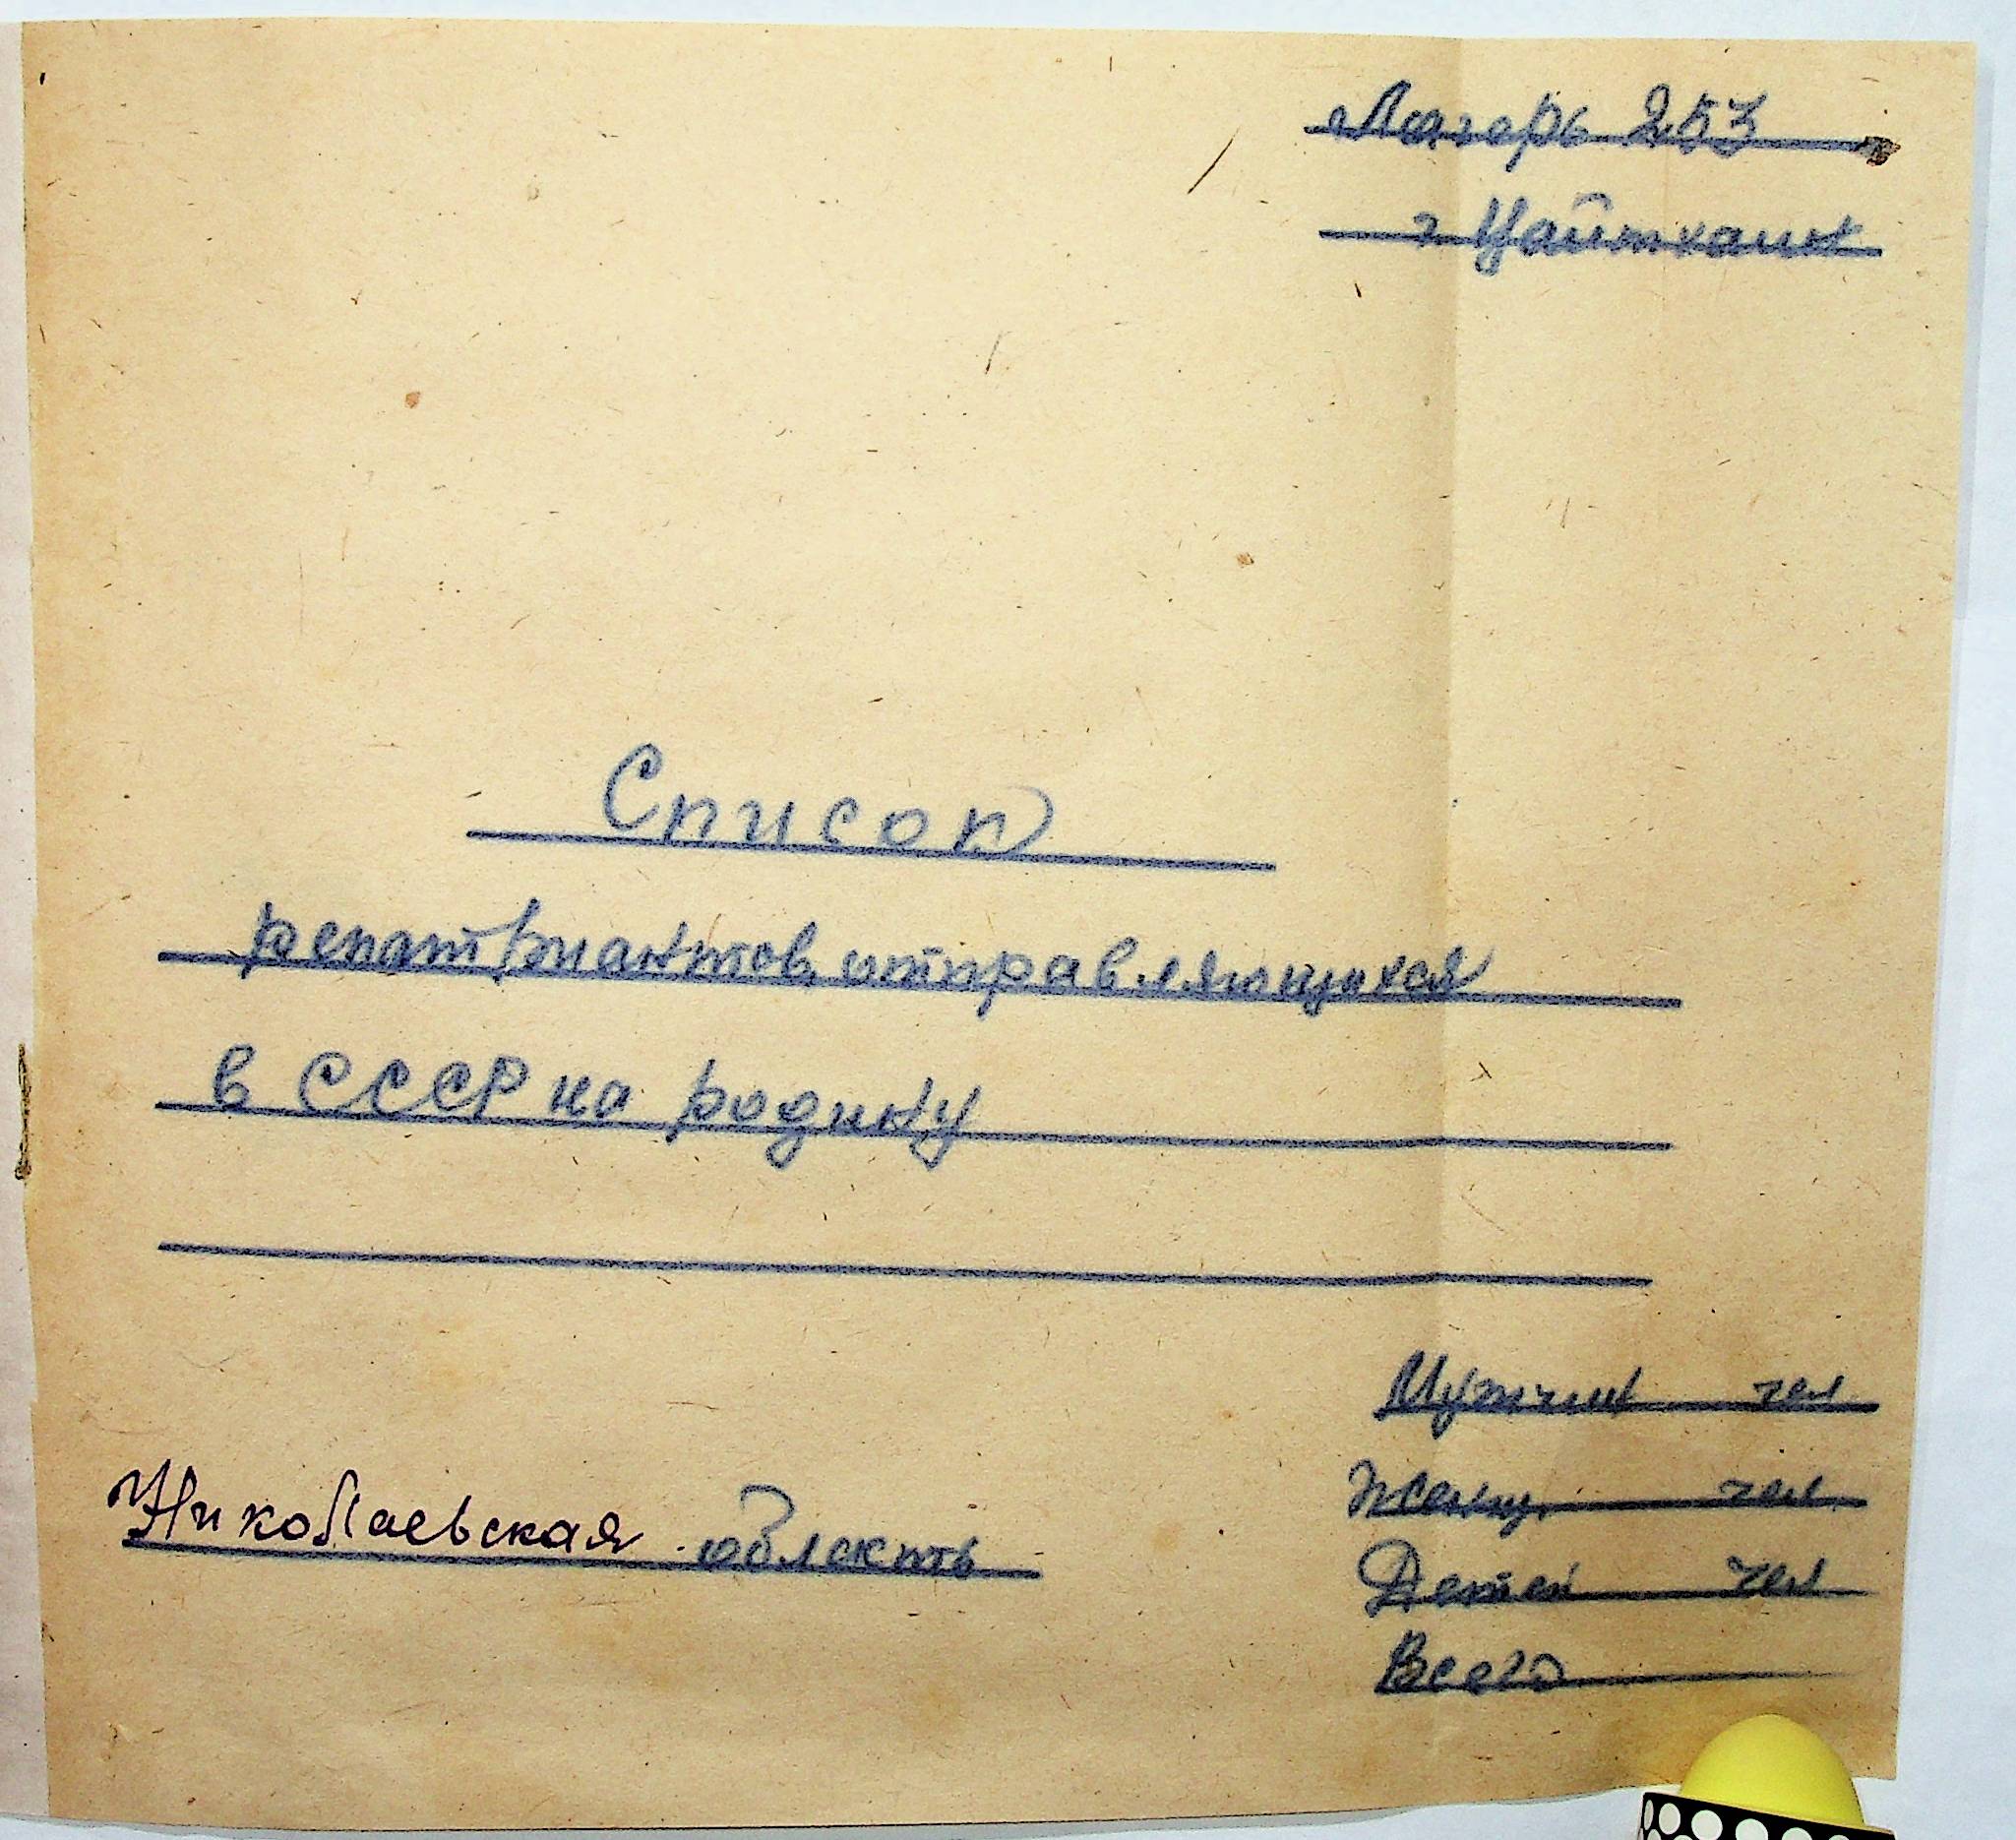 Лагерь 253
г Цайтхайн
Список
репатриантов, отправляющихся
в СССР на родину
Мужчин чел
Женщ. чел.
Николаевская область
Детей чел
Всего